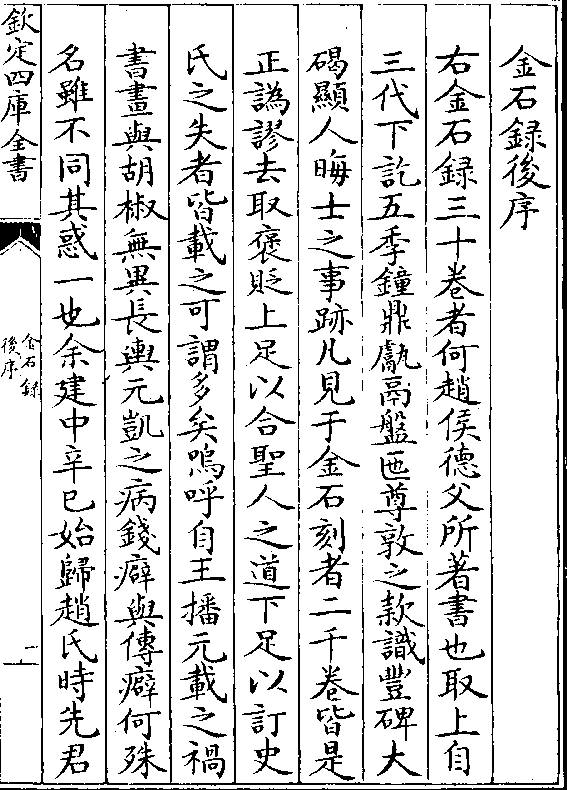 金石録後序
右金石録三十卷者何趙侯德父所著書也取上自
三代下訖五季鐘鼎甗鬲盤匜尊敦之款識豐碑大
碣顯人晦士之事跡凡見于金石刻者二千卷皆是
正譌謬去取褒貶上足以合聖人之道下足以訂史
氏之失者皆載之可謂多矣嗚呼自王播元載之禍
書畫與胡椒無異長輿元凱之病錢癖與傳癖何殊
名雖不同其惑一也余建中辛巳始歸趙氏時先君
欽定四庫全書
金石録
後序
一